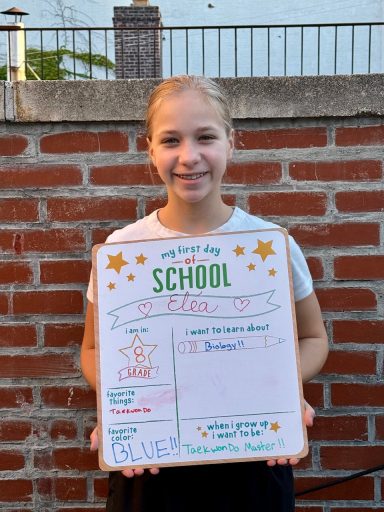 my first day
of
SCHOOL
Eléa
i am in:
8
GRADE
favorite
things:
TaekwonDo
favorite
color:
BLUE!!
i want to learn about
Biology!!
when i grow up
i want to be:
TaekwonDo Master!!